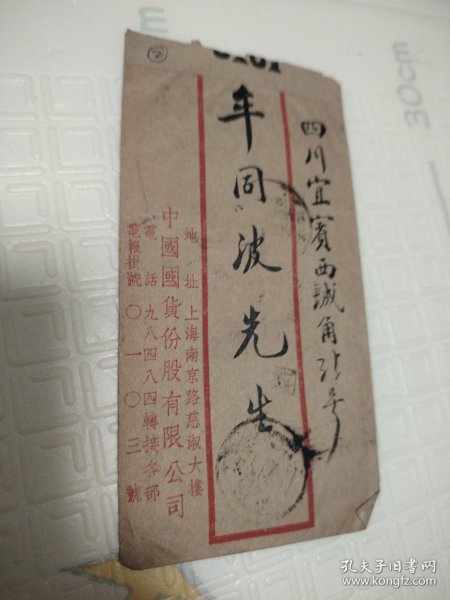 四川宜賓西城角31号
牟同波先生
地址上海南京路慈淑大樓
中國國貨份股有限公司
電話九八四八四轉接各部
電報掛號〇一〇三號
30cm
孔夫子旧书网
www.kongfz.com